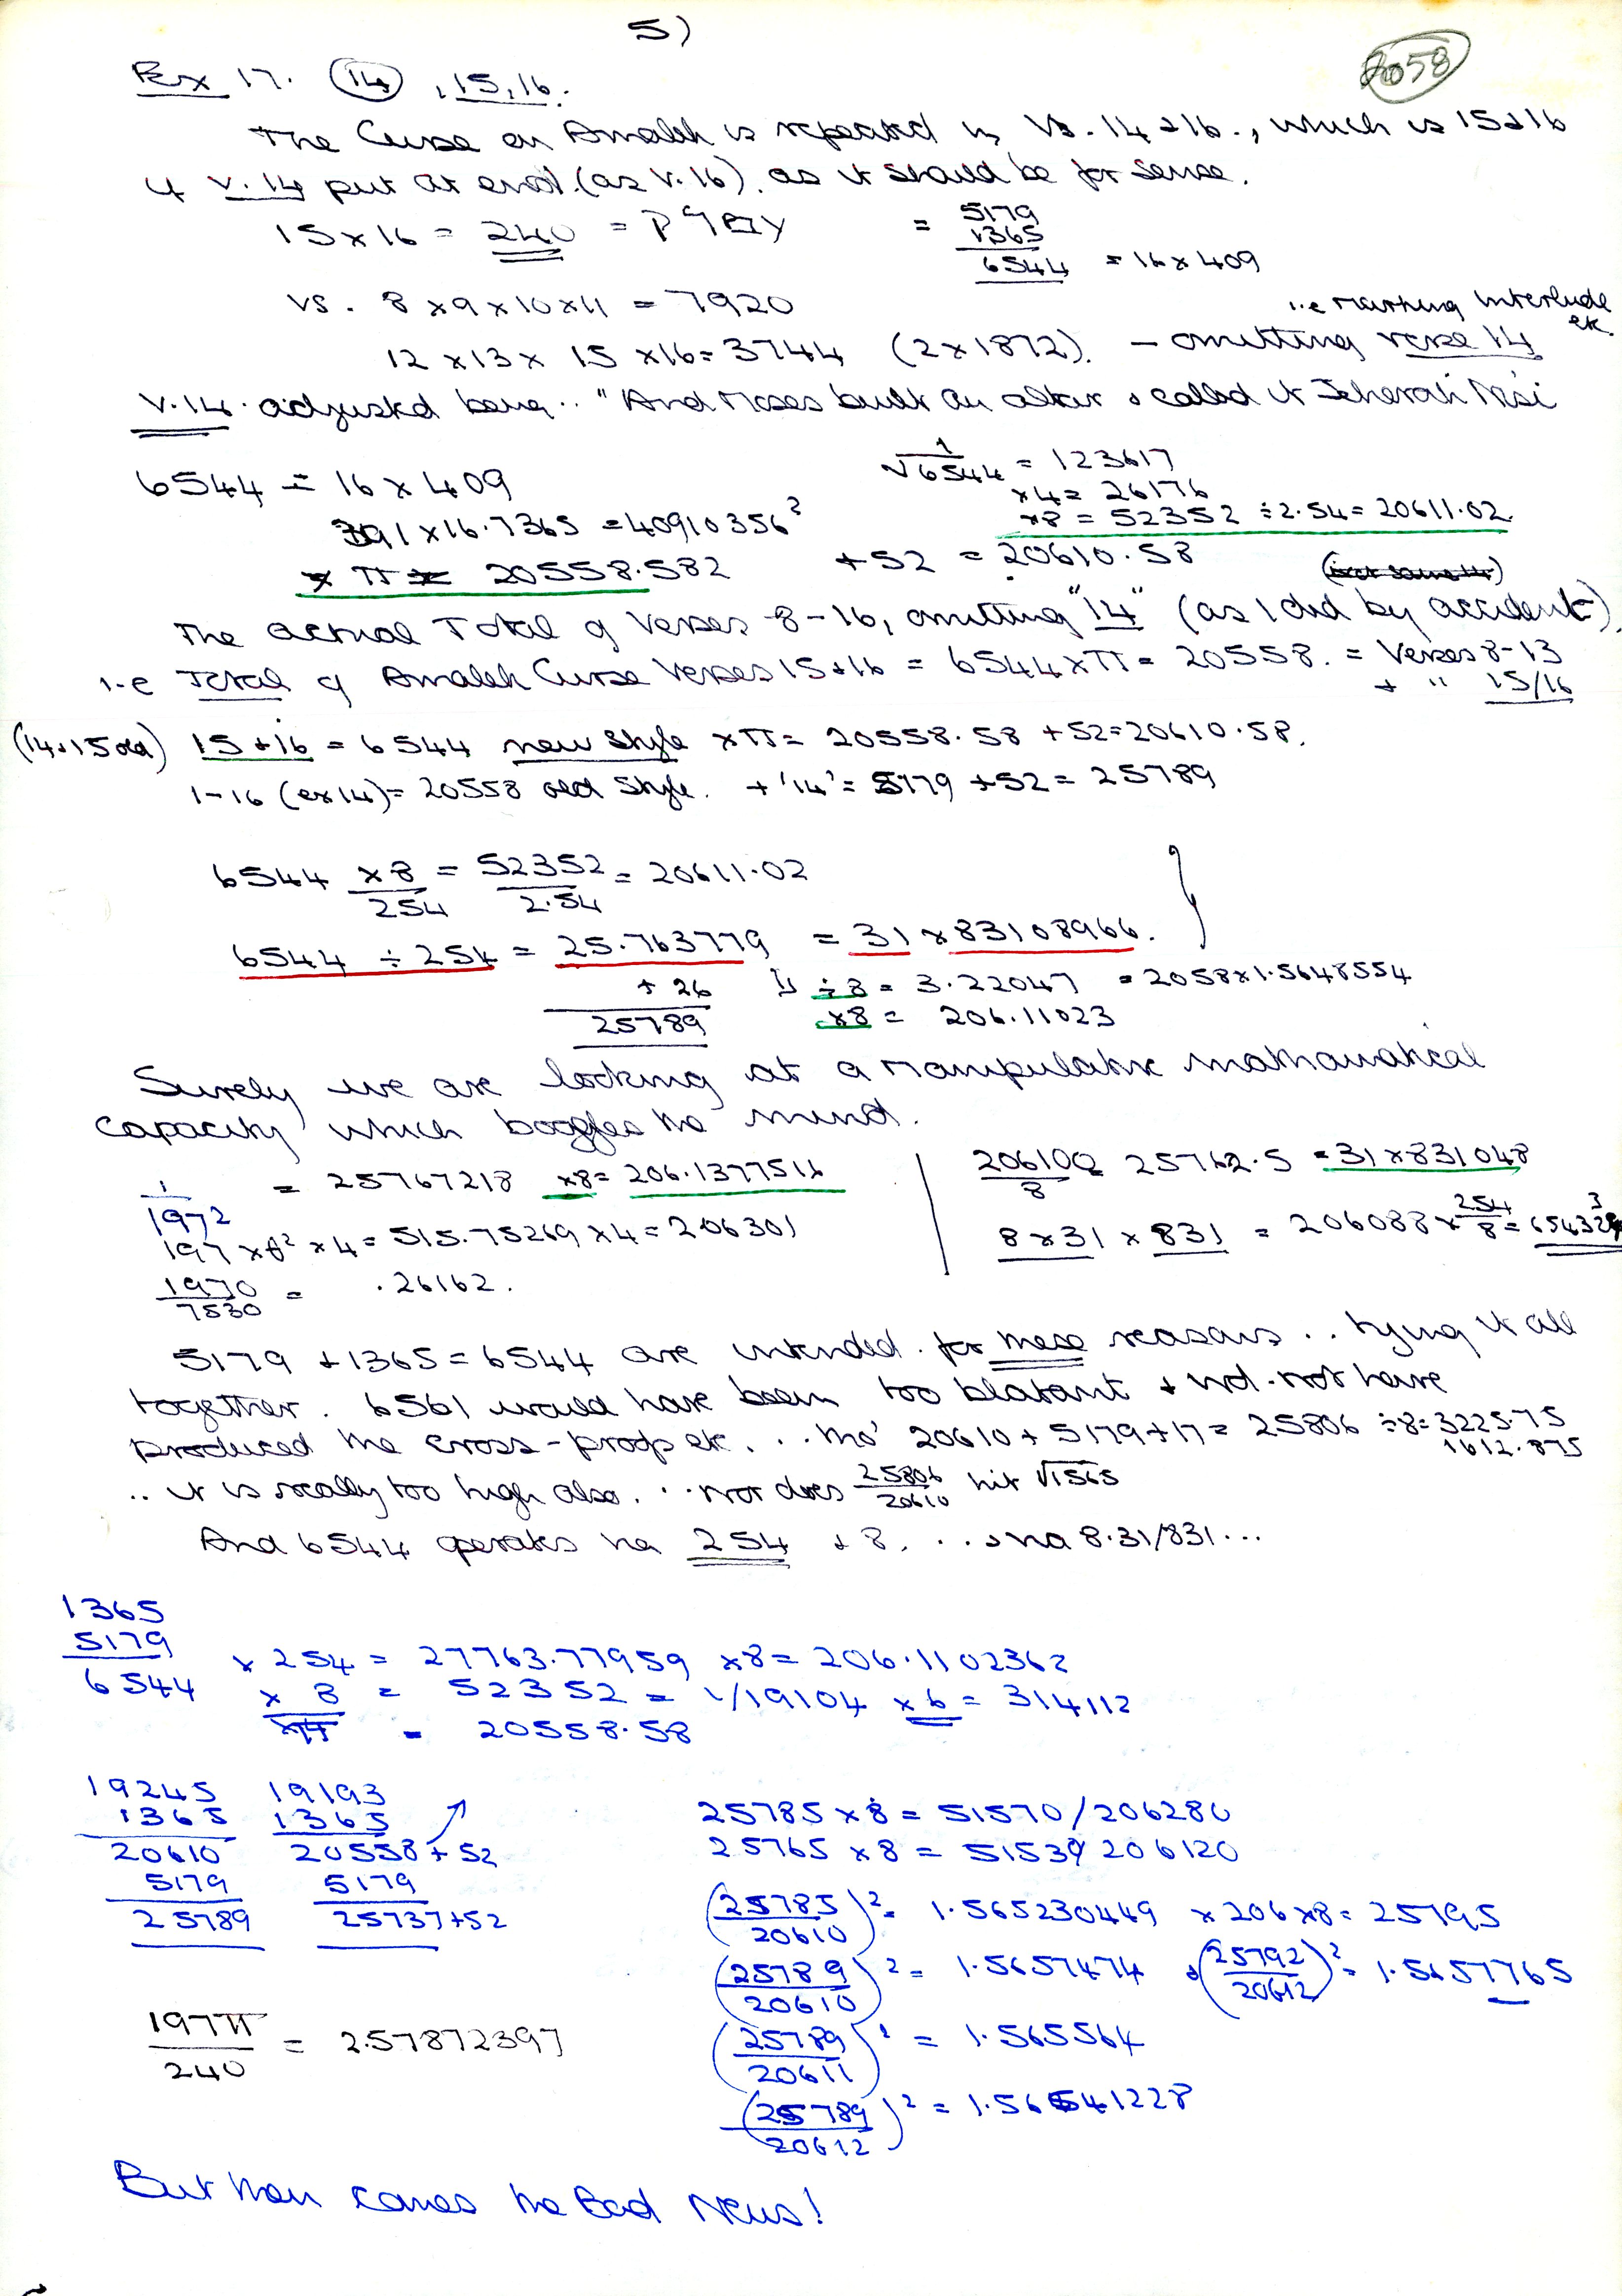 5)
2058
Ex 17. 14, 15, 16.
The Curse on Amalek is repeated in Vs. 14 & 16., which is 15 & 16
if v. 14 put at end. (as v. 16). as it should be for sense.
15 x 16 = 240 =
= 5179
1365
6544 = 16 x 409
vs. 8 x 9 x 10 x 11 = 7920
i.e Marking interlude etc.
12 x 13 x 15 x 16 = 3744 (2 x 1872). - omitting verse 14
V. 14. adjusted being.. "And Moses built an altar & called it Jehovah Nisi
6544 = 16 x 409
1/√6544 = 123617
x4 = 26176
391 x 16.7365 = 40910356²
x8 = 52352 ÷ 2.54 = 20611.02
x π = 20558.582 +52 = 20610.58
The actual Total of Verses 8-16, omitting "14" (as I did by accident).
i.e Total of Amalek Curse Verses 15 & 16 = 6544 x π = 20558. = Verses 8-13
+ " 15/16
(14 & 15 old) 15 + 16 = 6544 new style x π = 20558.58 + 52 = 20610.58.
1-16 (ex 14) = 20558 old style. + '14' = 5179 + 52 = 25789
6544 x 8 / 254 = 52352 / 2.54 = 20611.02
6544 ÷ 254 = 25.763779 = 31 x 83108966.
+ 26
÷8 = 3.22047 = 2058 x 1.5648554
25789
x8 = 206.11023
Surely we are looking at a manipulative mathematical
capacity which boggles the mind.
1/1972 = 25767218 x8 = 206.1377516
206100/8 = 25762.5 = 31 x 831048
197 x 6² x 4 = 515.75269 x 4 = 206301
8 x 31 x 831 = 206088 x 254/8 = 65432943
1970/7530 = .26162.
5179 + 1365 = 6544 are intended for these reasons .. tying it all
together. 6561 would have been too blatant & wd. not have
produced the cross-proofs etc. .. tho' 20610 + 5179 + 17 = 25806 ÷ 8 = 3225.75
1612.875
.. it is really too high also. .. nor does 25806/20610 hit √1565
And 6544 operates via 254 & 8. .. & via 8.31/831 ...
1365
5179
6544
x 254 = 27763.77959 x8 = 206.1102362
x 8 = 52352 = 1/19104 x 6 = 314112
xπ = 20558.58
19245 19193
1365 1365
20610 20558 + 52
5179 5179
25789 25737 + 52
25785 x 8 = 51570 / 206280
25765 x 8 = 51530 / 206120
(25785/20610)² = 1.565230449 x 206 x 8 = 25795
(25789/20610)² = 1.5657474 & (25792/20612)² = 1.5657765
197π/240 = 2.57872397
(25789/20611)² = 1.565564
(25789/20612)² = 1.565541228
But then comes the Bad News!